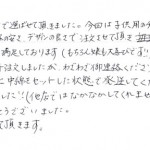 で選ばせて頂きました。今回は子供用の
の安さ、デザインの良さで注文させて頂き
満足しております(もちろん娘も大喜びです
注文しましたが、わざわざ御連絡ください
に中綿をセットした状態で発送してく
した!!(他店ではなかなかしてくれませ
とうございました。
て頂きます。